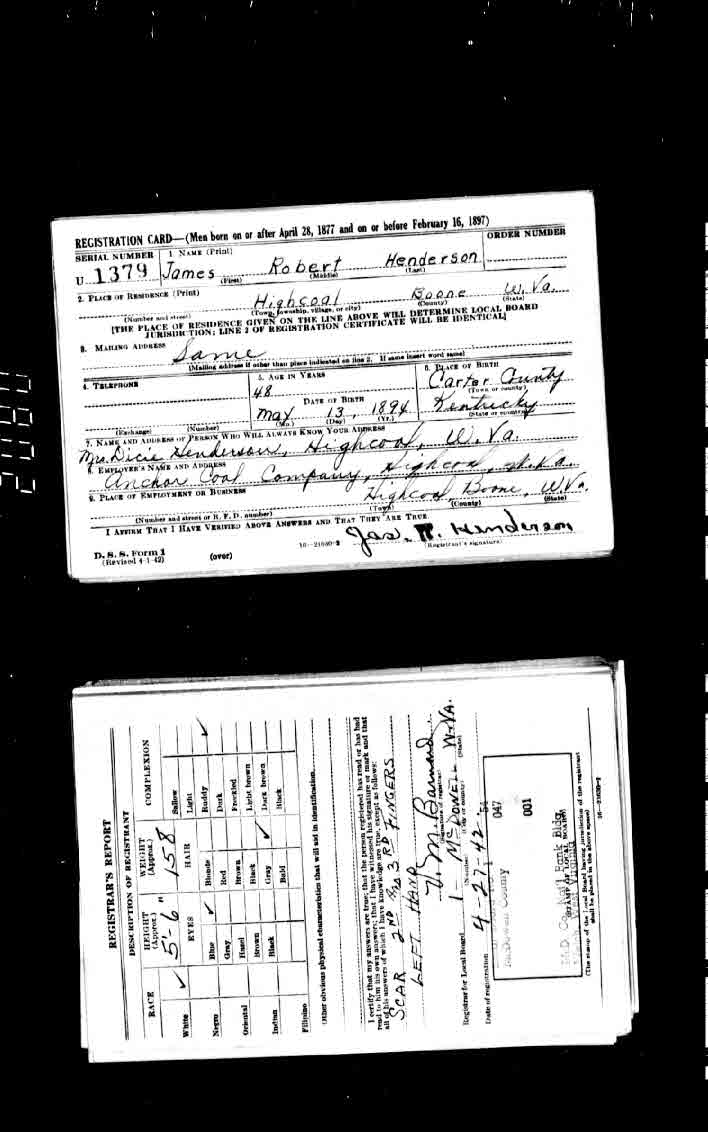 REGISTRATION CARD—(Men born on or after April 28, 1877 and on or before February 16, 1897)
SERIAL NUMBER
1. NAME (Print)
ORDER NUMBER
U 1379
James Robert Henderson
(First) (Middle) (Last)
2. PLACE OF RESIDENCE (Print)
Highcoal Boone W. Va.
(Number and street) (Town, township, village, or city) (County) (State)
[THE PLACE OF RESIDENCE GIVEN ON THE LINE ABOVE WILL DETERMINE LOCAL BOARD
JURISDICTION; LINE 2 OF REGISTRATION CERTIFICATE WILL BE IDENTICAL]
3. MAILING ADDRESS
Same
[Mailing address if other than place indicated on line 2. If same insert word same]
4. TELEPHONE
5. AGE IN YEARS
6. PLACE OF BIRTH
48
Carter County
(Town or county)
DATE OF BIRTH
May 13, 1894
Kentucky
(Exchange) (Number) (Mo.) (Day) (Yr.) (State or country)
7. NAME AND ADDRESS OF PERSON WHO WILL ALWAYS KNOW YOUR ADDRESS
Mrs. Dicie Henderson, Highcoal, W. Va.
8. EMPLOYER'S NAME AND ADDRESS
Anchor Coal Company, Highcoal, W. Va.
9. PLACE OF EMPLOYMENT OR BUSINESS
Highcoal, Boone, W. Va.
(Number and street or R. F. D. number) (Town) (County) (State)
I AFFIRM THAT I HAVE VERIFIED ABOVE ANSWERS AND THAT THEY ARE TRUE.
Jas. R. Henderson
D. S. S. Form 1
(Revised 4-1-42)
(over)
16—21630-2
(Registrant's signature)
REGISTRAR'S REPORT
DESCRIPTION OF REGISTRANT
RACE
HEIGHT (Approx.)
WEIGHT (Approx.)
COMPLEXION
5'-6"
158
EYES
HAIR
White ✓
Negro
Oriental
Indian
Filipino
Blue ✓
Gray
Hazel
Brown
Black
Blonde
Red
Brown
Black
Gray ✓
Bald
Sallow
Light
Ruddy ✓
Dark
Freckled
Light brown
Dark brown
Black
Other obvious physical characteristics that will aid in identification
I certify that my answers are true; that the person registered has read or has had
read to him his own answers; that I have witnessed his signature or mark and that
all of his answers of which I have knowledge are true, except as follows:
SCAR 2ND AND 3RD FINGERS
LEFT HAND
(Signature of registrar)
Registrar for Local Board 1 McDOWELL W. VA.
(Number) (City or county) (State)
Date of registration 4-27-42
McDowell County
047
001
(STAMP OF LOCAL BOARD)
(The stamp of the Local Board having jurisdiction of the registrant
shall be placed in the above space)
16—21630-2